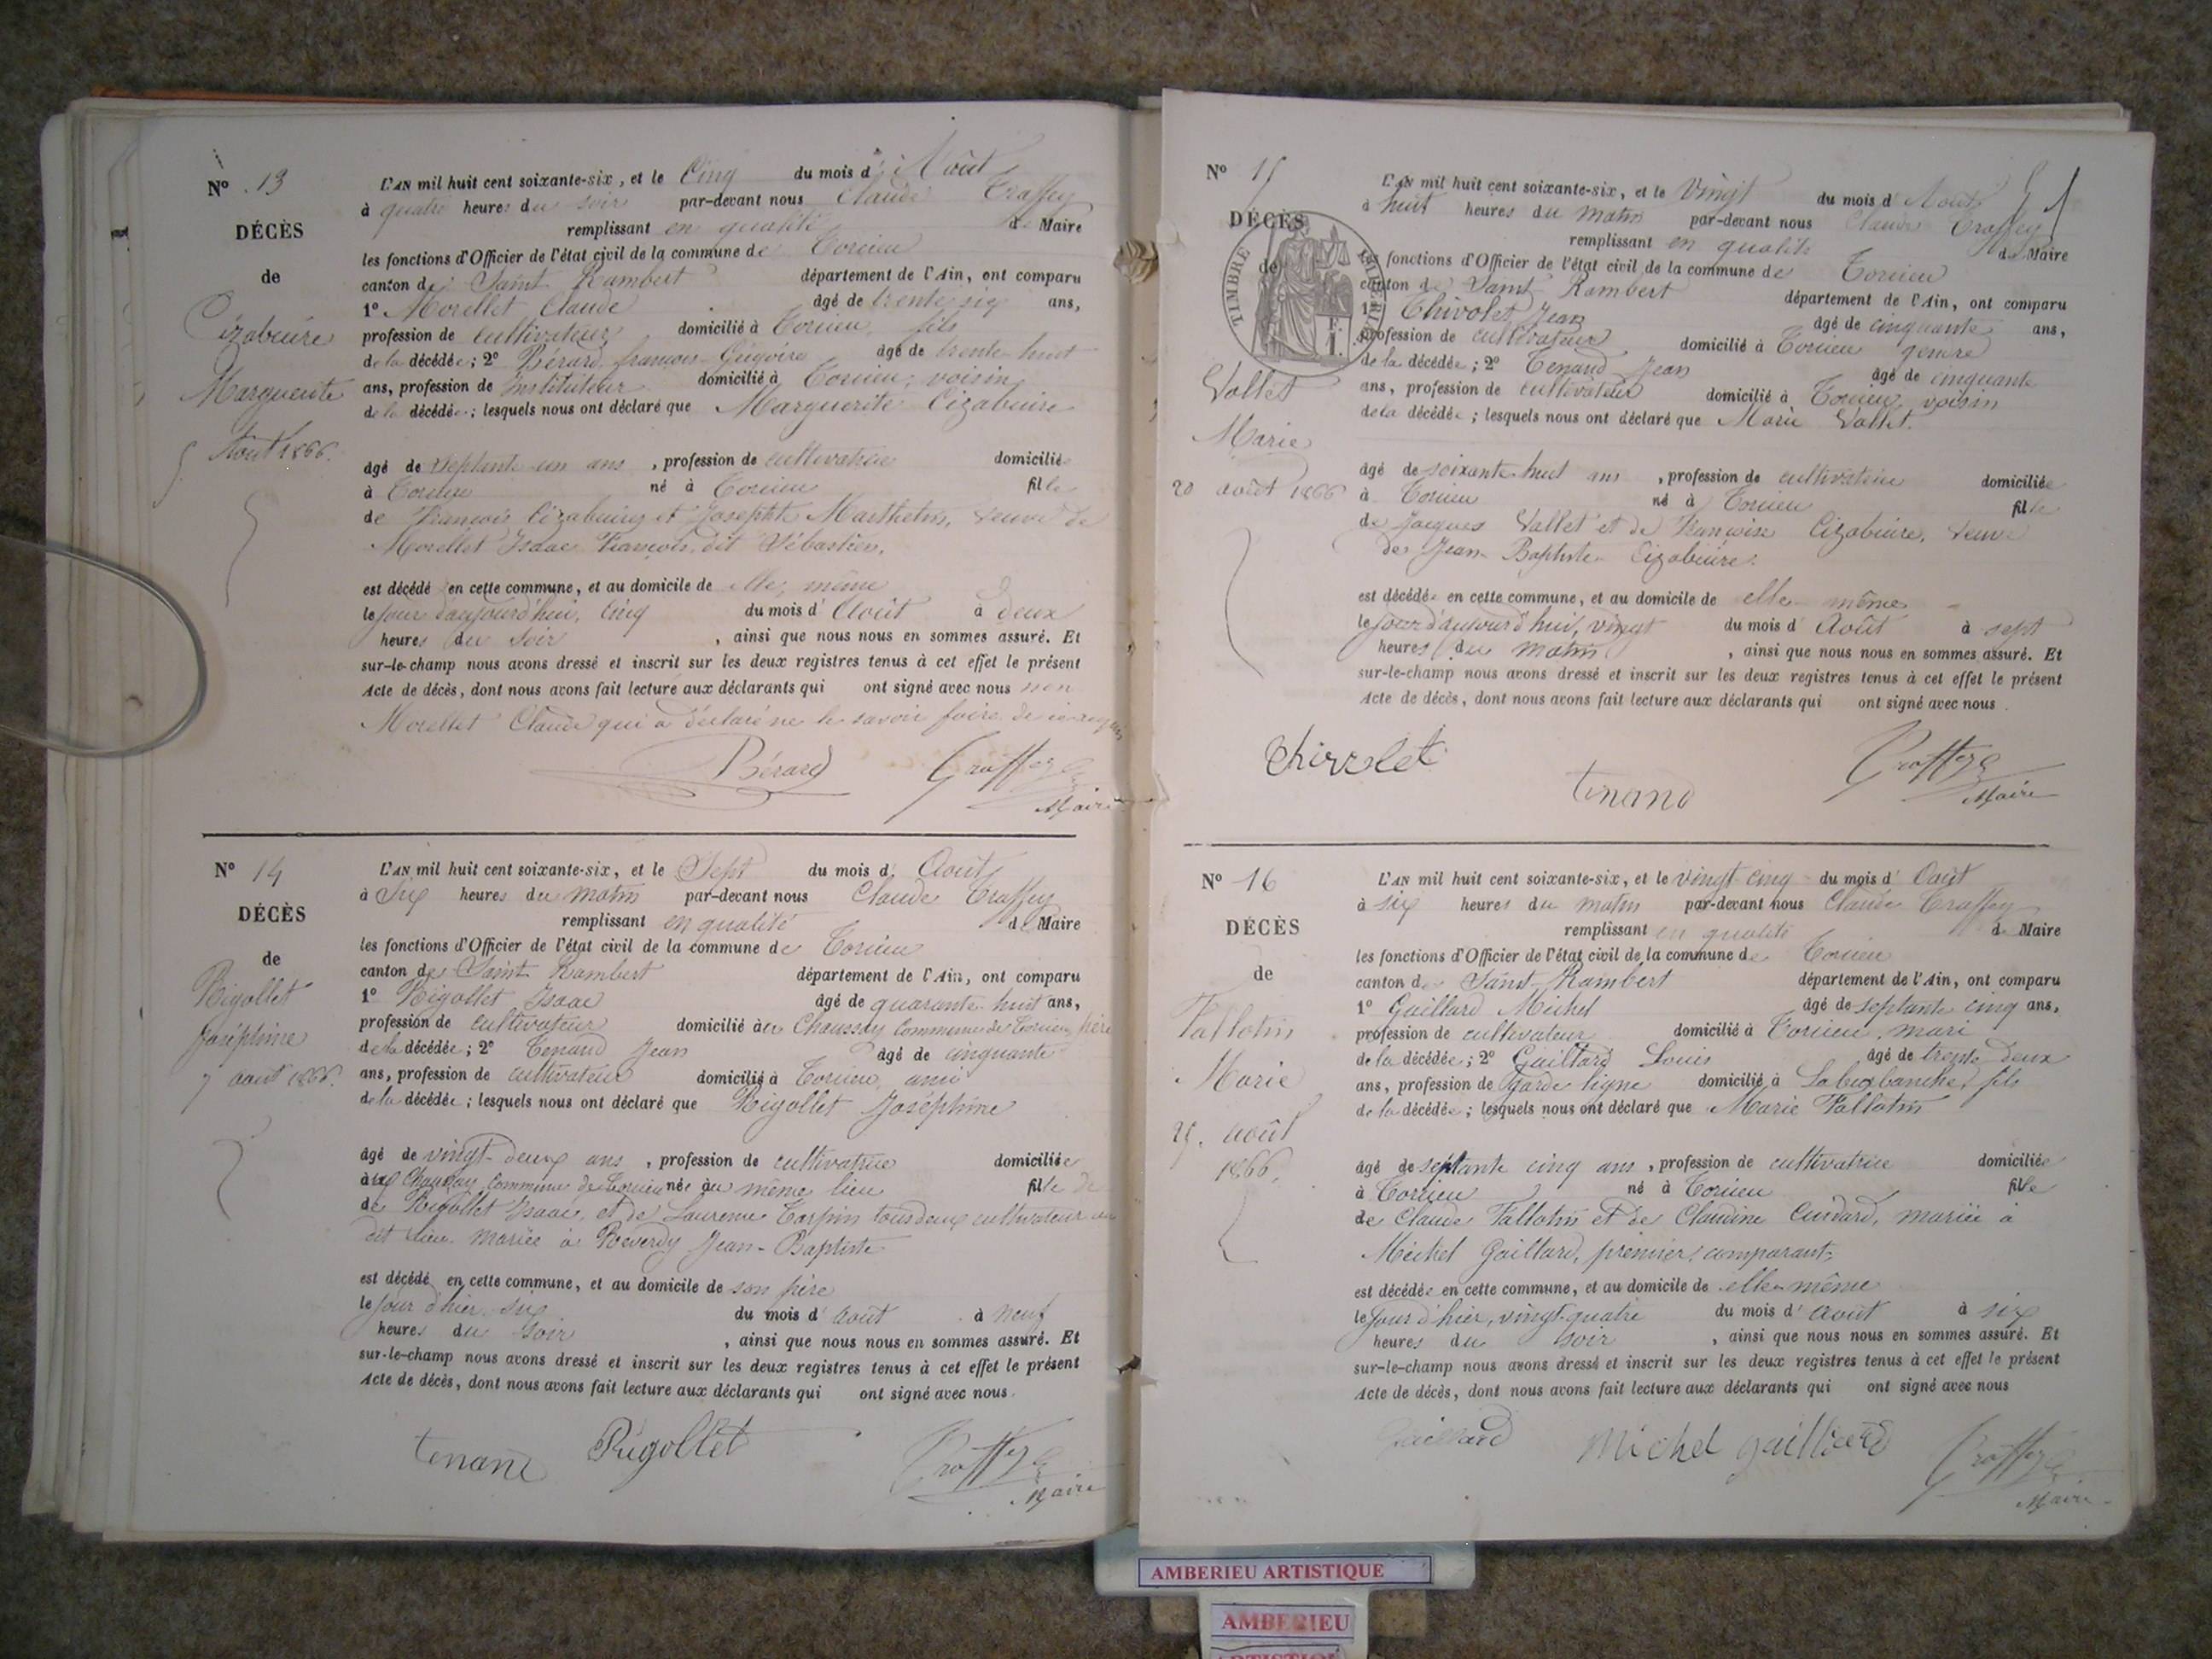 Nº 13
DÉCÈS
de
Cizabuire
Marguerite
5 Août 1866.
L'AN mil huit cent soixante-six, et le Cinq du mois d' Août
à quatre heures du soir par-devant nous Claude Traffey
remplissant en qualité de Maire
les fonctions d'Officier de l'état civil de la commune de Torcieu
canton de Saint Rambert département de l'Ain, ont comparu
1º Morellet Claude âgé de trente six ans,
profession de cultivateur domicilié à Torcieu, fils
de la décédée; 2º Bérard françois Grégoire âgé de trente huit
ans, profession de instituteur domicilié à Torcieu, voisin
de la décédée; lesquels nous ont déclaré que Marguerite Cizabuire
âgé de septante un ans, profession de cultivatrice domiciliée
à Torcieu né à Torcieu fille
de François Cizabuire et Josephte Marthelin, veuve de
Morellet Isaac François, dit Sébastien,
est décédé en cette commune, et au domicile de elle, même
le jour d'aujourd'hui, cinq du mois d' Août à deux
heures du soir, ainsi que nous nous en sommes assuré. Et
sur-le-champ nous avons dressé et inscrit sur les deux registres tenus à cet effet le présent
Acte de décès, dont nous avons fait lecture aux déclarants qui ont signé avec nous non
Morellet Claude qui a déclaré ne le savoir faire de ce requis
Bérard Traffey
Maire
Nº 14
DÉCÈS
de
Rigollet
Joséphine
7 août 1866.
L'AN mil huit cent soixante-six, et le Sept du mois d' Août
à Six heures du matin par-devant nous Claude Traffey
remplissant en qualité de Maire
les fonctions d'Officier de l'état civil de la commune de Torcieu
canton de Saint Rambert département de l'Ain, ont comparu
1º Rigollet Isaac âgé de quarante-huit ans,
profession de cultivateur domicilié à Chaussay Commune de Torcieu père
de la décédée; 2º Tenand Jean âgé de cinquante
ans, profession de cultivateur domicilié à Torcieu, ami
de la décédée; lesquels nous ont déclaré que Rigollet Joséphine
âgé de vingt-deux ans, profession de cultivatrice domiciliée
à Chaussay, commune de Torcieu née au même lieu fille de
de Rigollet Isaac, et de Laurence Tarpin tous deux cultivateur au
dit lieu. mariée à Reverdy Jean-Baptiste
est décédé en cette commune, et au domicile de son père
le jour d'hier, six du mois d' Août à neuf
heures du soir, ainsi que nous nous en sommes assuré. Et
sur-le-champ nous avons dressé et inscrit sur les deux registres tenus à cet effet le présent
Acte de décès, dont nous avons fait lecture aux déclarants qui ont signé avec nous.
tenand Rigollet Traffey
Maire
Nº 15
DÉCÈS
de
TIMBRE IMPÉRIAL
Vallet
Marie
20 août 1866
L'AN mil huit cent soixante-six, et le Vingt du mois d' Août
à huit heures du matin par-devant nous Claude Traffey
remplissant en qualité de Maire
les fonctions d'Officier de l'état civil de la commune de Torcieu
canton de Saint Rambert département de l'Ain, ont comparu
1º Chivolet Jean âgé de cinquante ans,
profession de cultivateur domicilié à Torcieu gendre
de la décédée; 2º Tenand Jean âgé de cinquante
ans, profession de cultivateur domicilié à Torcieu, voisin
de la décédée; lesquels nous ont déclaré que Marie Vallet.
âgé de soixante-huit ans, profession de cultivatrice domiciliée
à Torcieu né à Torcieu fille
de Jacques Vallet et de Françoise Cizabuire, veuve
de Jean-Baptiste Cizabuire.
est décédée en cette commune, et au domicile de elle-même
le jour d'aujourd'hui, vingt du mois d' Août à sept
heures du matin, ainsi que nous nous en sommes assuré. Et
sur-le-champ nous avons dressé et inscrit sur les deux registres tenus à cet effet le présent
Acte de décès, dont nous avons fait lecture aux déclarants qui ont signé avec nous.
Chivolet tenand Traffey
Maire
Nº 16
DÉCÈS
de
Vallotin
Marie
25. août
1866.
L'AN mil huit cent soixante-six, et le vingt-cinq du mois d' Août
à six heures du matin par-devant nous Claude Traffey
remplissant en qualité de Maire
les fonctions d'Officier de l'état civil de la commune de Torcieu
canton de Saint Rambert département de l'Ain, ont comparu
1º Gaillard Michel âgé de septante cinq ans,
profession de cultivateur domicilié à Torcieu, mari
de la décédée; 2º Gaillard Louis âgé de trente-deux
ans, profession de Garde ligne domicilié à fils
de la décédée; lesquels nous ont déclaré que Marie Vallotin
âgé de septante cinq ans, profession de cultivatrice domiciliée
à Torcieu né à Torcieu fille
de Claude Vallotin et de Claudine mariée à
Michel Gaillard, premier comparant,
est décédée en cette commune, et au domicile de elle-même
le jour d'hier, vingt-quatre du mois d' août à six
heures du soir, ainsi que nous nous en sommes assuré. Et
sur-le-champ nous avons dressé et inscrit sur les deux registres tenus à cet effet le présent
Acte de décès, dont nous avons fait lecture aux déclarants qui ont signé avec nous
Gaillard Michel gaillard Traffey
Maire
AMBERIEU ARTISTIQUE
AMBERIEU
ARTISTIQUE